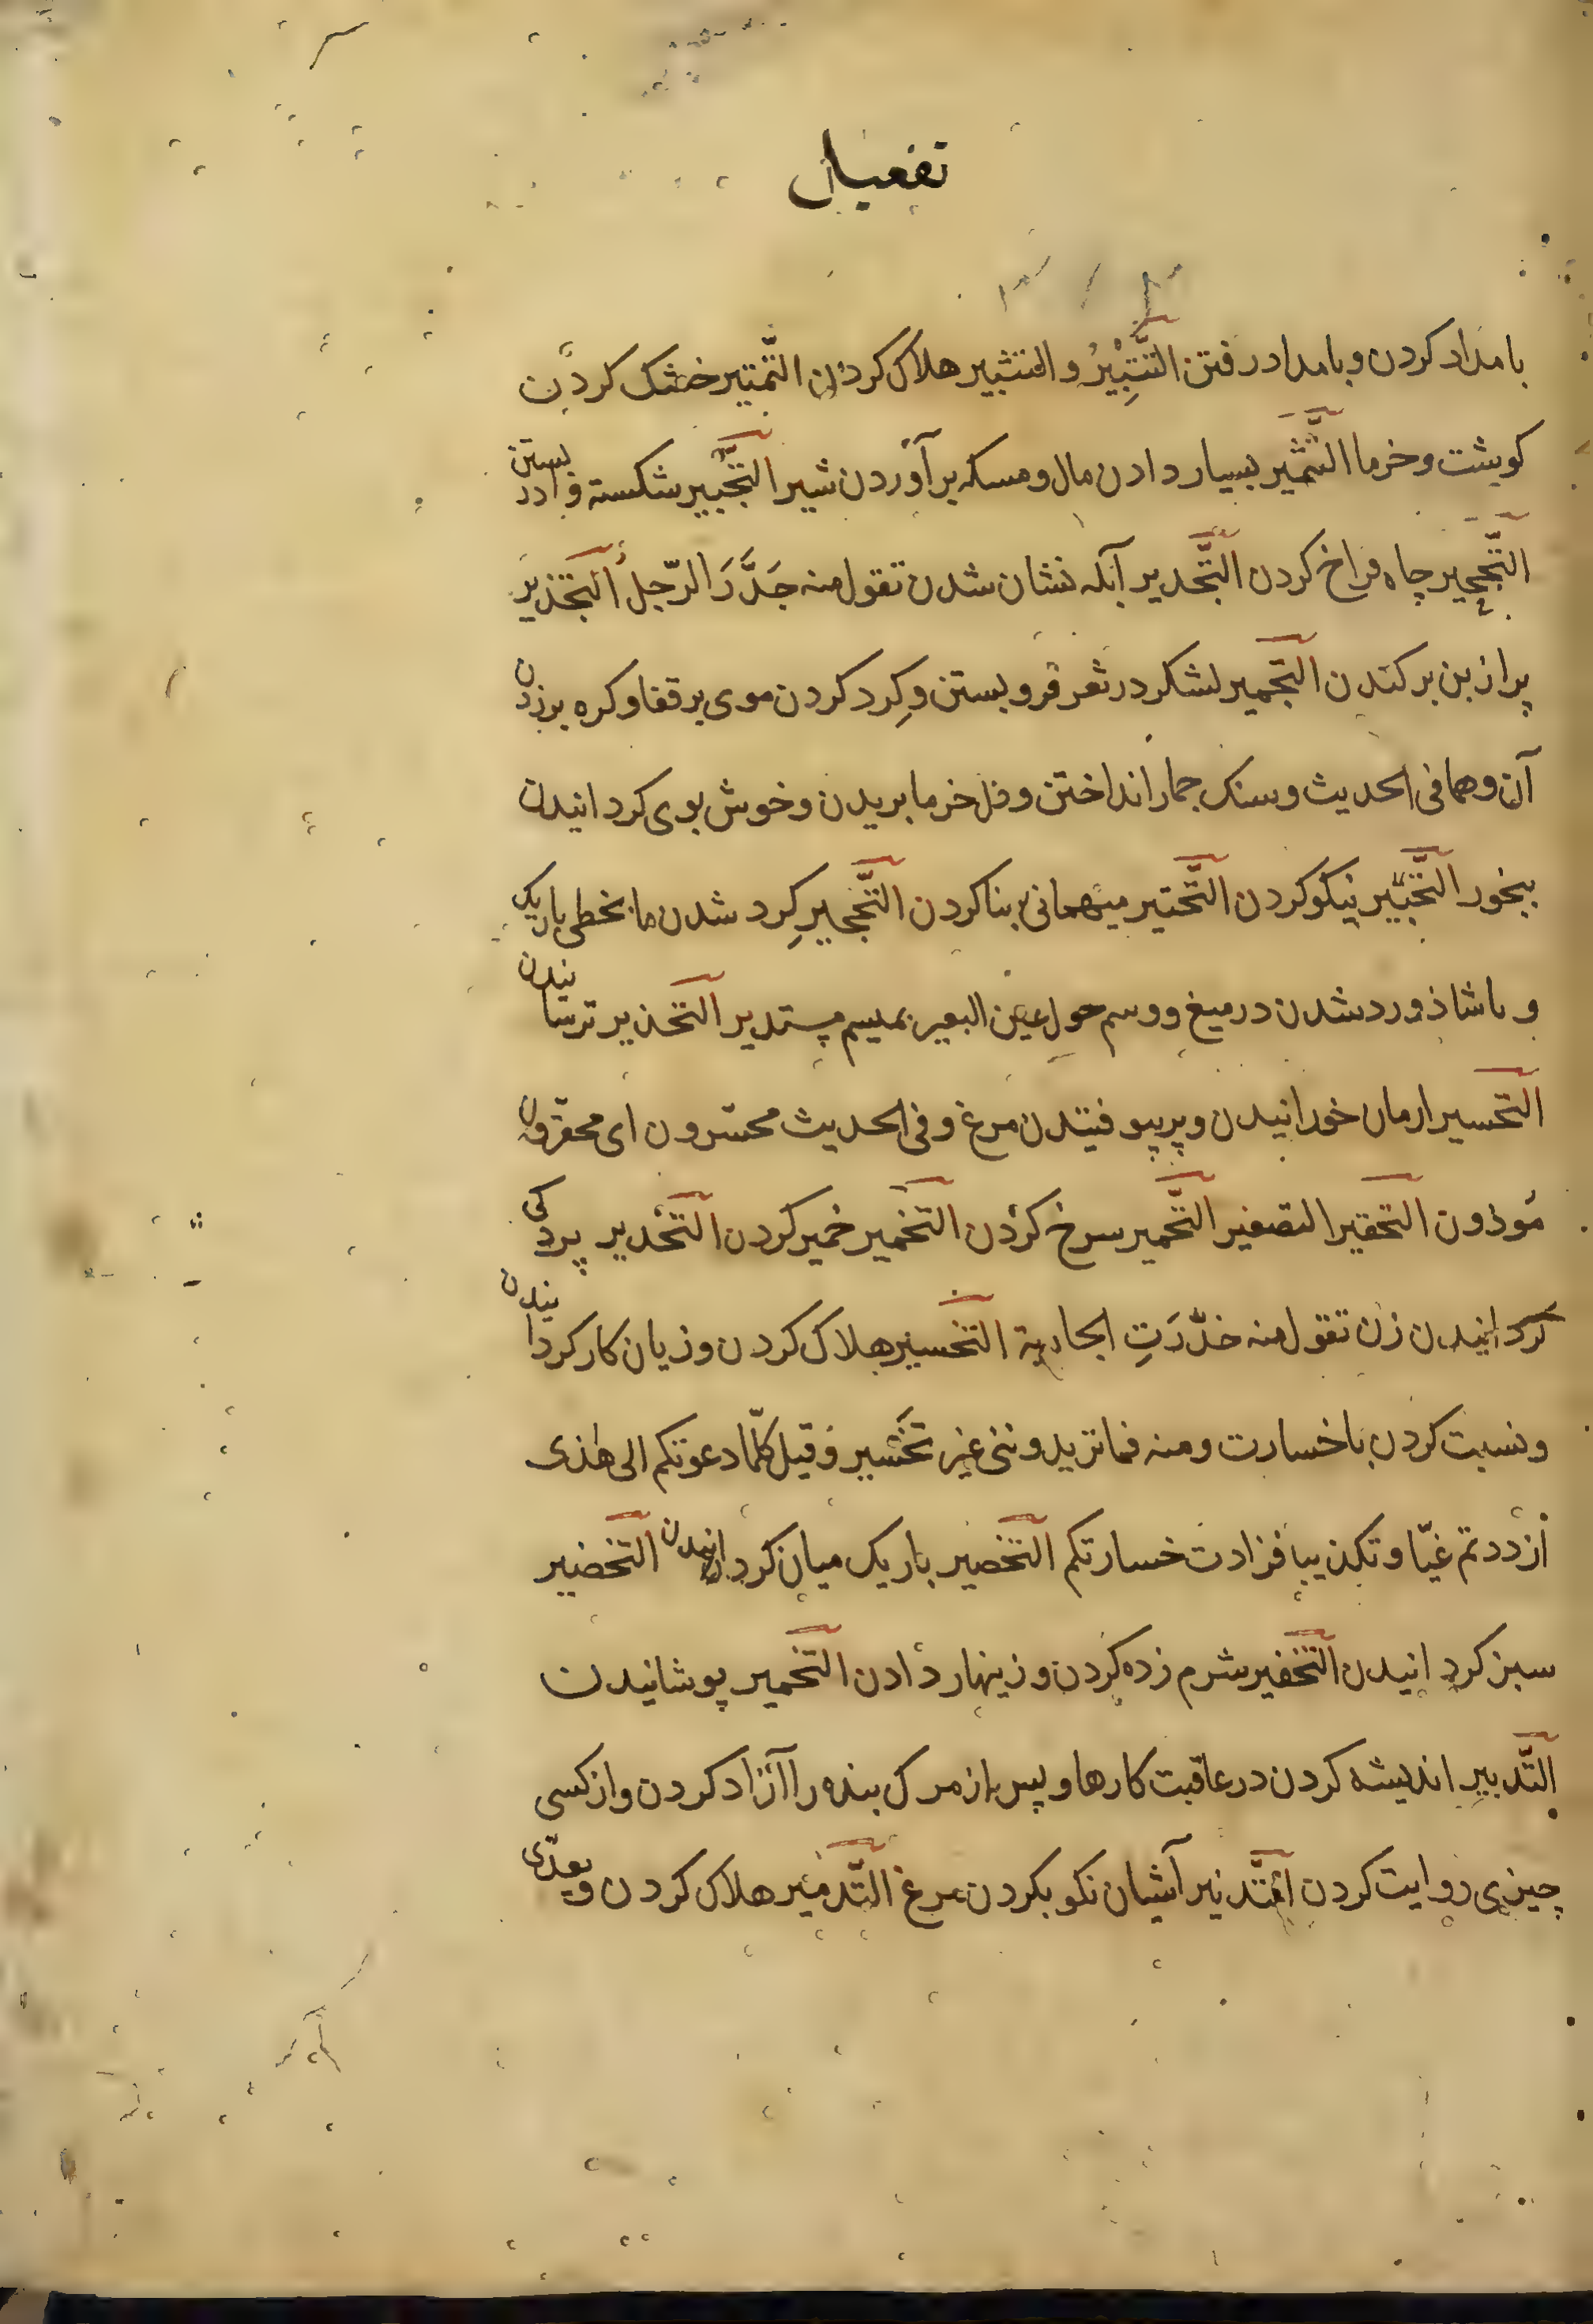 تفعيل
بامداد كردن و بامداد رفتن التَّتْبِيْرُ و التثبير هلاك كردن التَّمْتير خشك كردن
كوشت و خرما التَّثمير بسيار دادن مال و مسكه برآوردن شير التَّجْبير شكسته وادر بستن
التَّجحير چاه فراخ كردن التَّجدير آبله نشان شدن تقول منه جَدَّرَ الرّجل التجذير
پر از بن بركندن التجمير لشكر در ثغر فرو بستن و كِرد كردن موى بر قفا و كره برزدن
آن و هما فى الحديث و سنك جمار انداختن و فل خرما بريدن و خوش بوى كردانيدن
ببخور التَّحْبير نيكو كردن التَّحتير ميهمانى بنا كردن التَّحجير كِرد شدن ماه بخطى باريك
و باشاذورد شدن در ميغ و وسم حول عين البعير بميسم مستدير التحذير ترسانيدن
التحسير ارمان خورانيدن و پر بيوفتيدن مرغ و فى الحديث محسّرون اى محقّرون
مُوذون التحقير التصغير التَّحمير سرخ كردن التخمير خمير كردن التَّخْدير پردكى
كردانيدن زن تقول منه خدّرَتِ الجارية التخسير هلاك كردن و زيان كار كردانيدن
و نسبت كردن باخسارت و منه فما تزيدوننى غير تَخْسير و قيل كلّما دعوتكم الى هٰذى
ازددتم غيّا و تكذيبا فزادت خسارتكم التخصير باريك ميان كردانيدن التخضير
سبز كردانيدن التخفير شرم زده كردن و زينهار دادن التخمير پوشانيدن
التَّدبير انديشه كردن در عاقبت كارها و پس از مرك بنده را آزاد كردن و از كسى
چيزى روايت كردن التَّدنير آشيان نكو بكردن مرغ التَّدمير هلاك كردن و يعدّى